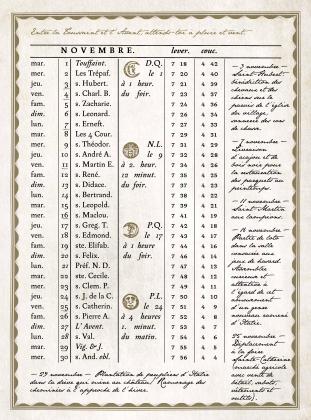 Entre la Toussaint et l'Avent, attends-toi à pluie et vent.
NOVEMBRE. lever. couc.
mar. 1 Toussaint. D.Q. 7 18 4 42
mer. 2 Les Trépaf. le 1 7 20 4 40
jeu. 3 s. Hubert. à 1 heur. 7 21 4 39
ven. 4 s. Charl. B. du foir. 7 23 4 37
fam. 5 s. Zacharie. 7 24 4 36
dim. 6 s. Leonard. 7 26 4 34
lun. 7 s. Erneft. 7 27 4 33
mar. 8 Les 4 Cour. 7 29 4 31
mer. 9 s. Théodor. N.L. 7 31 4 29
jeu. 10 s. André A. le 9 7 32 4 28
ven. 11 s. Martin E. à 2. heur. 7 34 4 26
fam. 12 s. René. 12 minut. 7 35 4 25
dim. 13 s. Didace. du foir. 7 37 4 23
lun. 14 s. Bertrand. 7 38 4 22
mar. 15 s. Leopold. 7 39 4 21
mer. 16 s. Maclou. 7 41 4 19
jeu. 17 s. Greg. T. P.Q. 7 42 4 18
ven. 18 s. Edmond. le 17 7 43 4 17
fam. 19 ste. Elifab. à 1 heure 7 44 4 16
dim. 20 s. Felix. du foir. 7 46 4 14
lun. 21 Préf. N. D. 7 47 4 13
mar. 22 ste. Cecile. 7 48 4 12
mer. 23 s. Clem. P. 7 49 4 11
jeu. 24 s. J. de la C. P.L. 7 50 4 10
ven. 25 s. Catherin. le 24 7 51 4 9
fam. 26 s. Pierre A. à 4 heures 7 52 4 8
dim. 27 L'Avent. 1. minut. 7 53 4 7
lun. 28 s. Val. du matin. 7 54 4 6
mar. 29 Vig. & J. 7 55 4 5
mer. 30 s. And. obl. 7 56 4 4
— 3 novembre —
Saint-Hubert:
bénédiction des
chevaux et des
chiens sur le
parvis de l'église
du village,
ouverture des
de chasse.
— 7 novembre —
Livraison
d'acajou et de
bois noir pour
la restauration
des parquets au
printemps.
— 11 novembre —
Saint-Martin
aux lampions.
— 16 novembre —
de loto
dans la salle
au
jeu de hasard
Assemblée
et
attentive à
l'égard de cet
amusement
d'un genre
nouveau venu
d'Italie.
25 novembre —
Déplacement
à la foire
Sainte-Catherine
(marché agricole
avec vente de
bétail, sabots,
vêtements et
outils).
— 29 novembre — Plantation de peupliers d'Italie
dans la drève qui mène au château! Ramonage des
cheminées à l'approche de l'hiver.